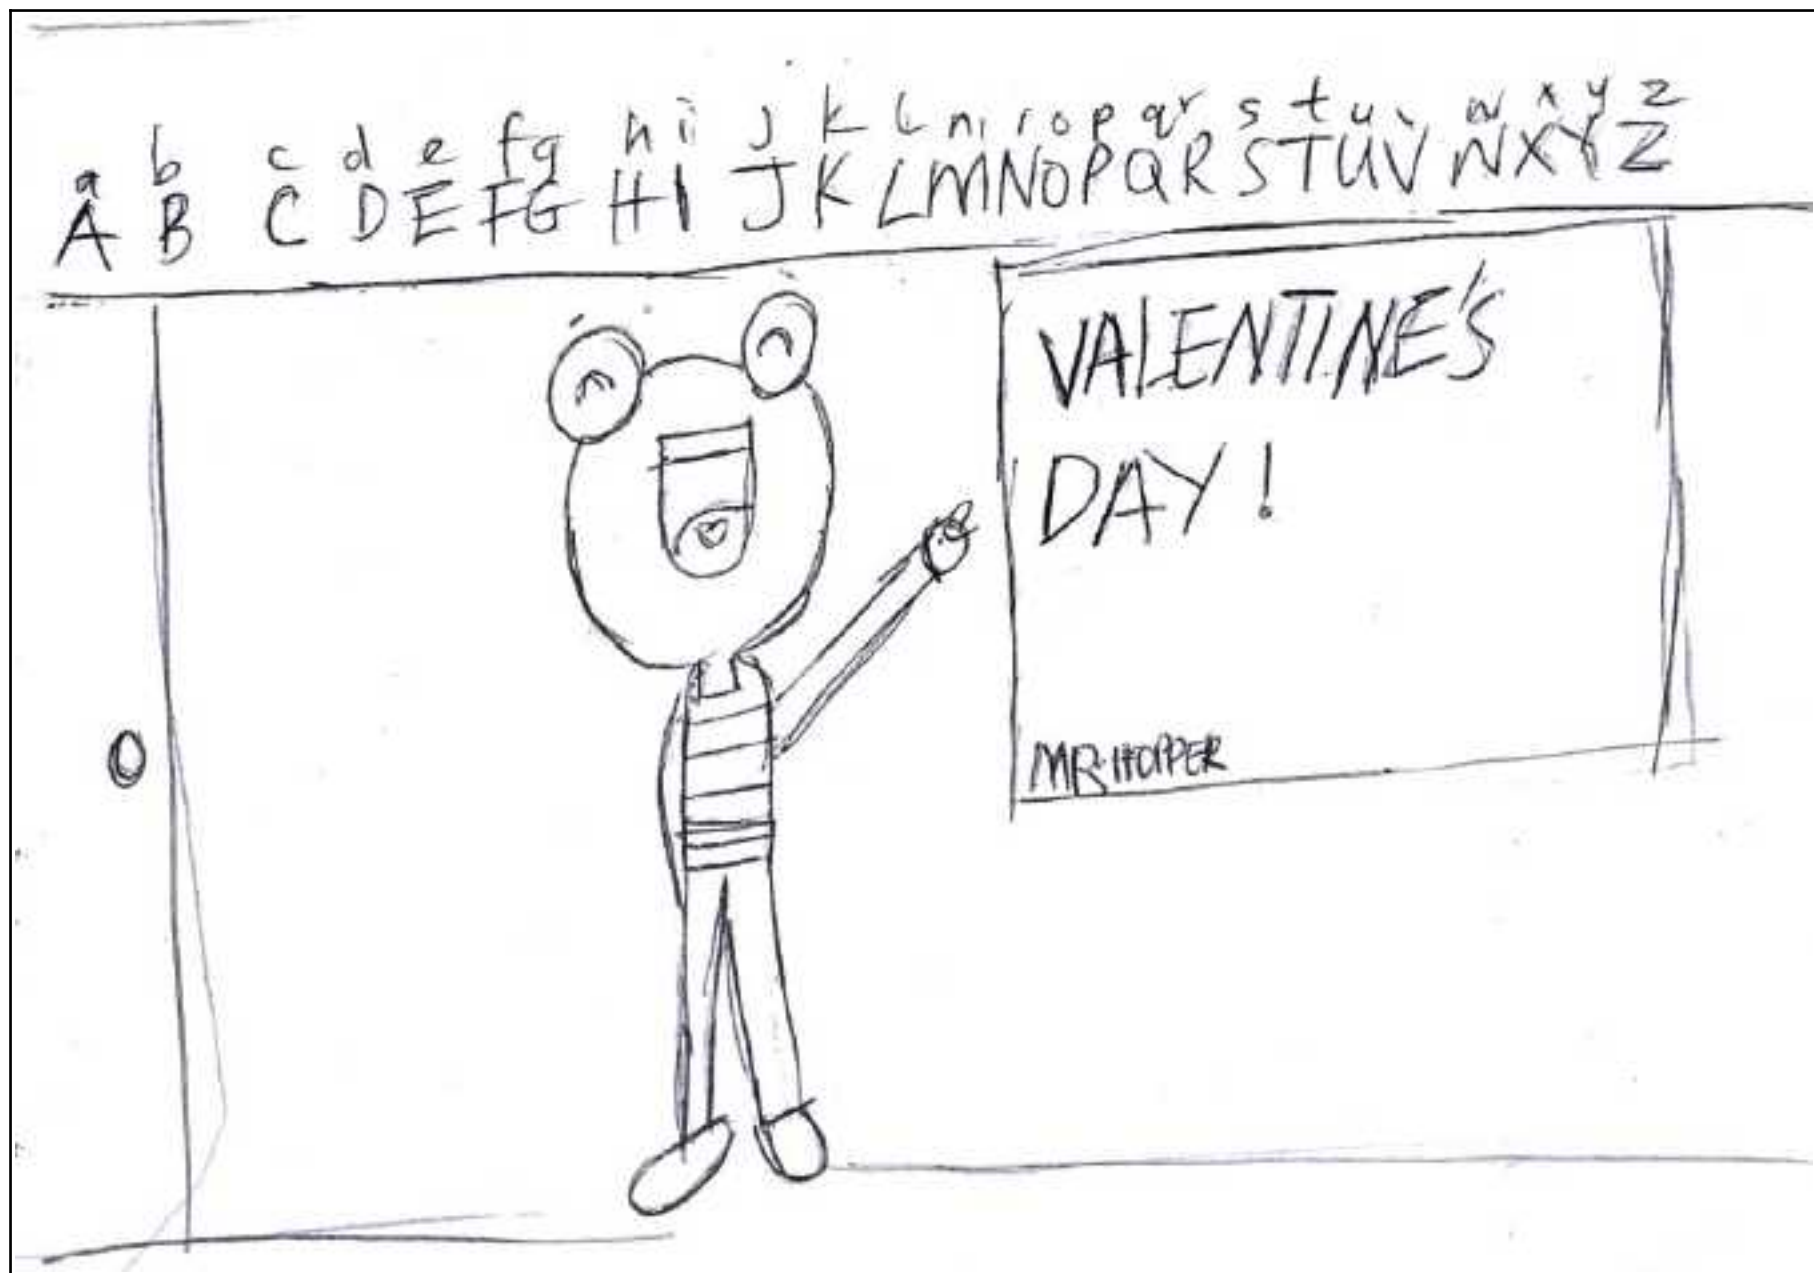 a b c d e f g h i j k l m n o p q r s t u v w x y z
A B C D E F G H I J K L M N O P Q R S T U V W X Y Z
VALENTINE'S
DAY!
MR. HOPPER